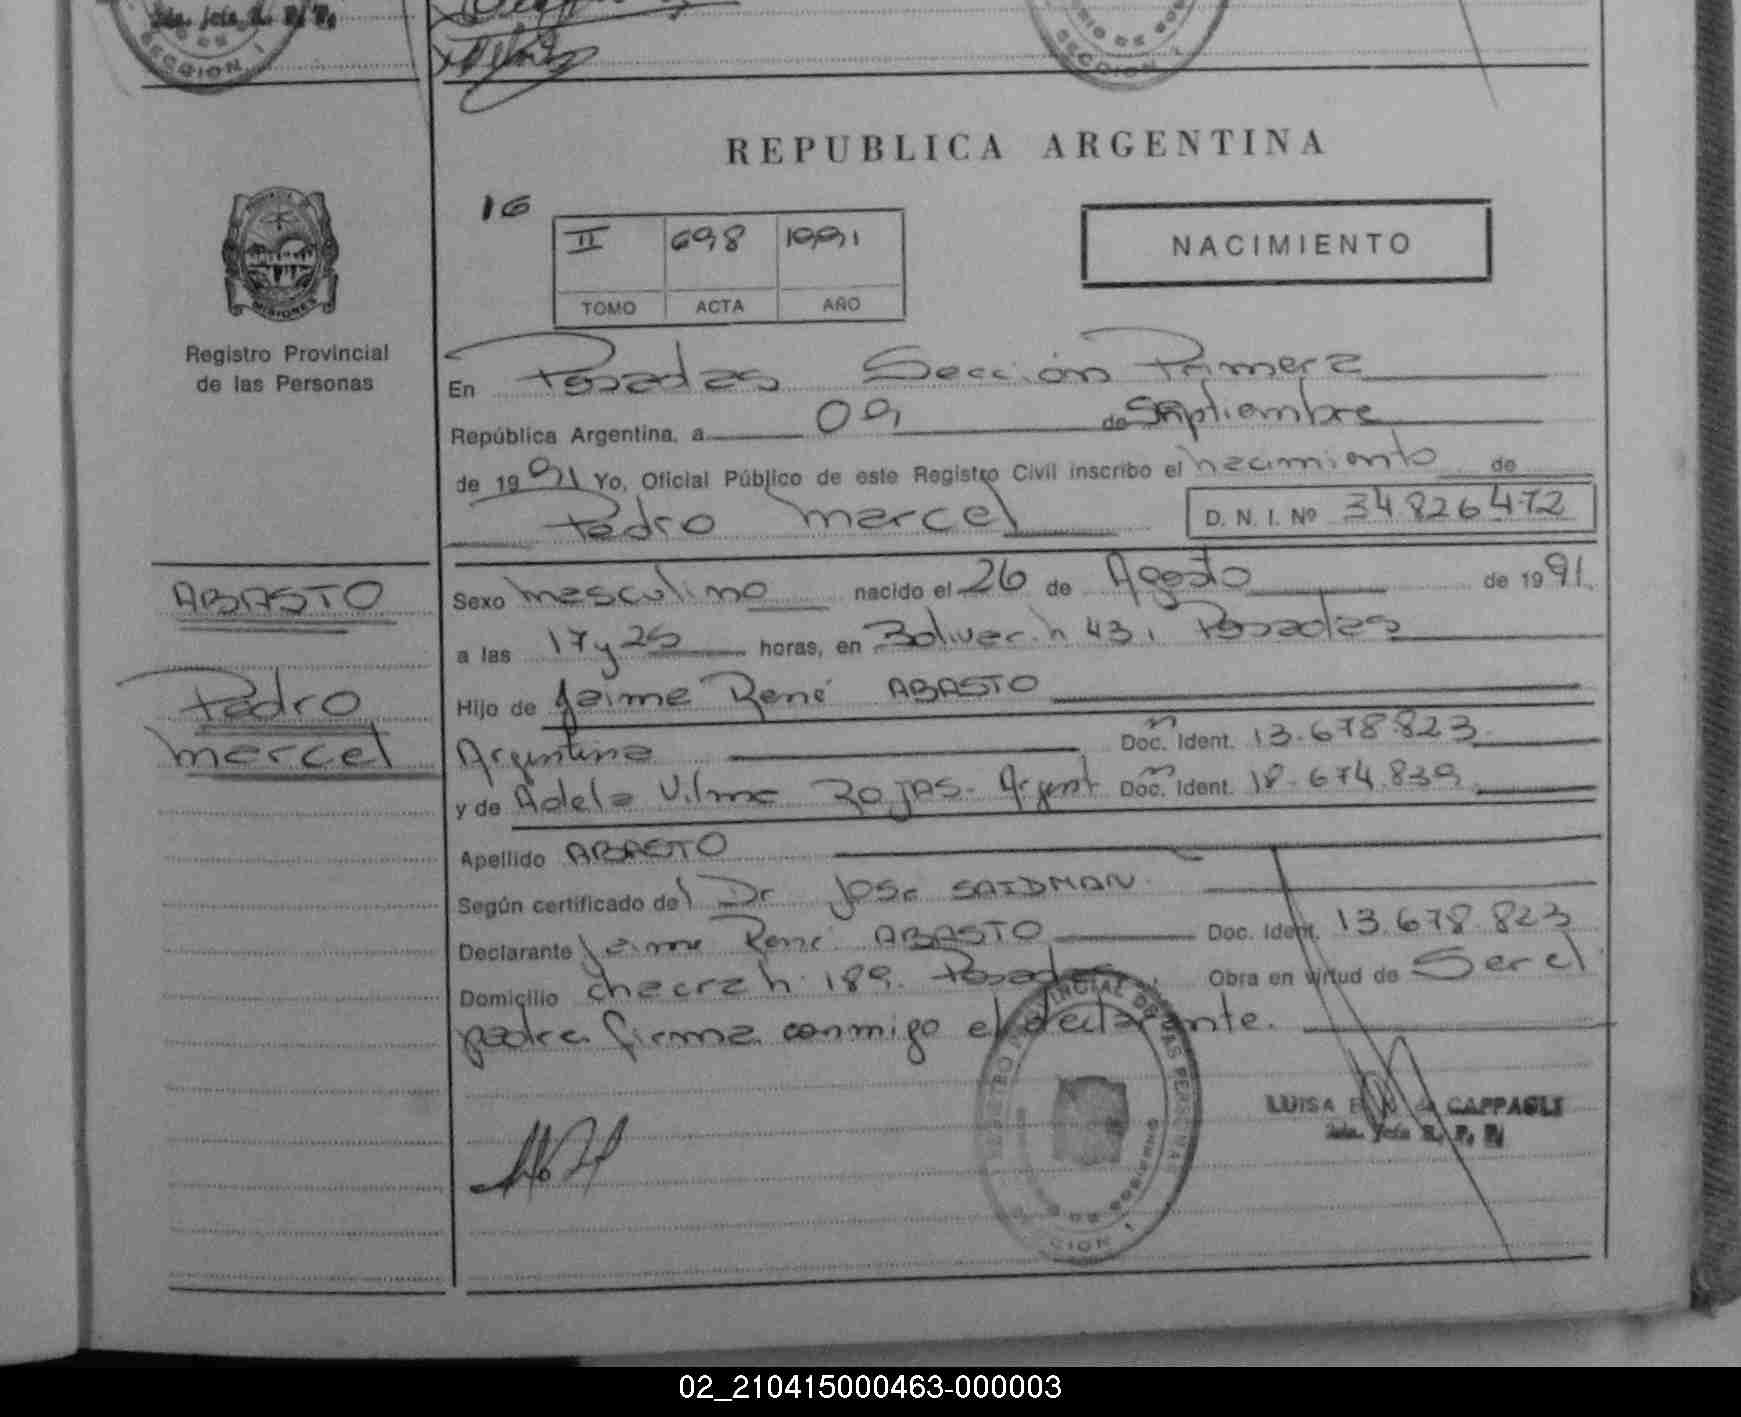 SECCION I
SECCION I
REPUBLICA ARGENTINA
16
II 698 1991
TOMO ACTA AÑO
NACIMIENTO
MISIONES
Registro Provincial
de las Personas
En Posadas Sección Primera
República Argentina, a 09 de Septiembre
de 1991 Yo, Oficial Público de este Registro Civil inscribo el nacimiento de
Pedro Marcel D. N. I. Nº 34.826.472
ABASTO
Pedro
Marcel
Sexo masculino nacido el 26 de Agosto de 1991.
a las 17 y 25 horas, en Bolivar. n 431 Posadas
Hijo de Jaime René ABASTO
Argentina Doc. Ident. 13.678.823
y de Adela Vilma ROJAS. Argent Doc. Ident. 18.674.839
Apellido ABASTO
Según certificado del Dr José SAIDMAN.
Declarante Jaime René ABASTO Doc. Ident. 13.678.823
Domicilio chacra n. 189. Posadas. Obra en virtud de Ser el
padre. firma conmigo el declarante.
REGISTRO PROVINCIAL DE LAS PERSONAS
LUISA CAPPAGLI
2da. Jefa R. P. P.
02_210415000463-000003